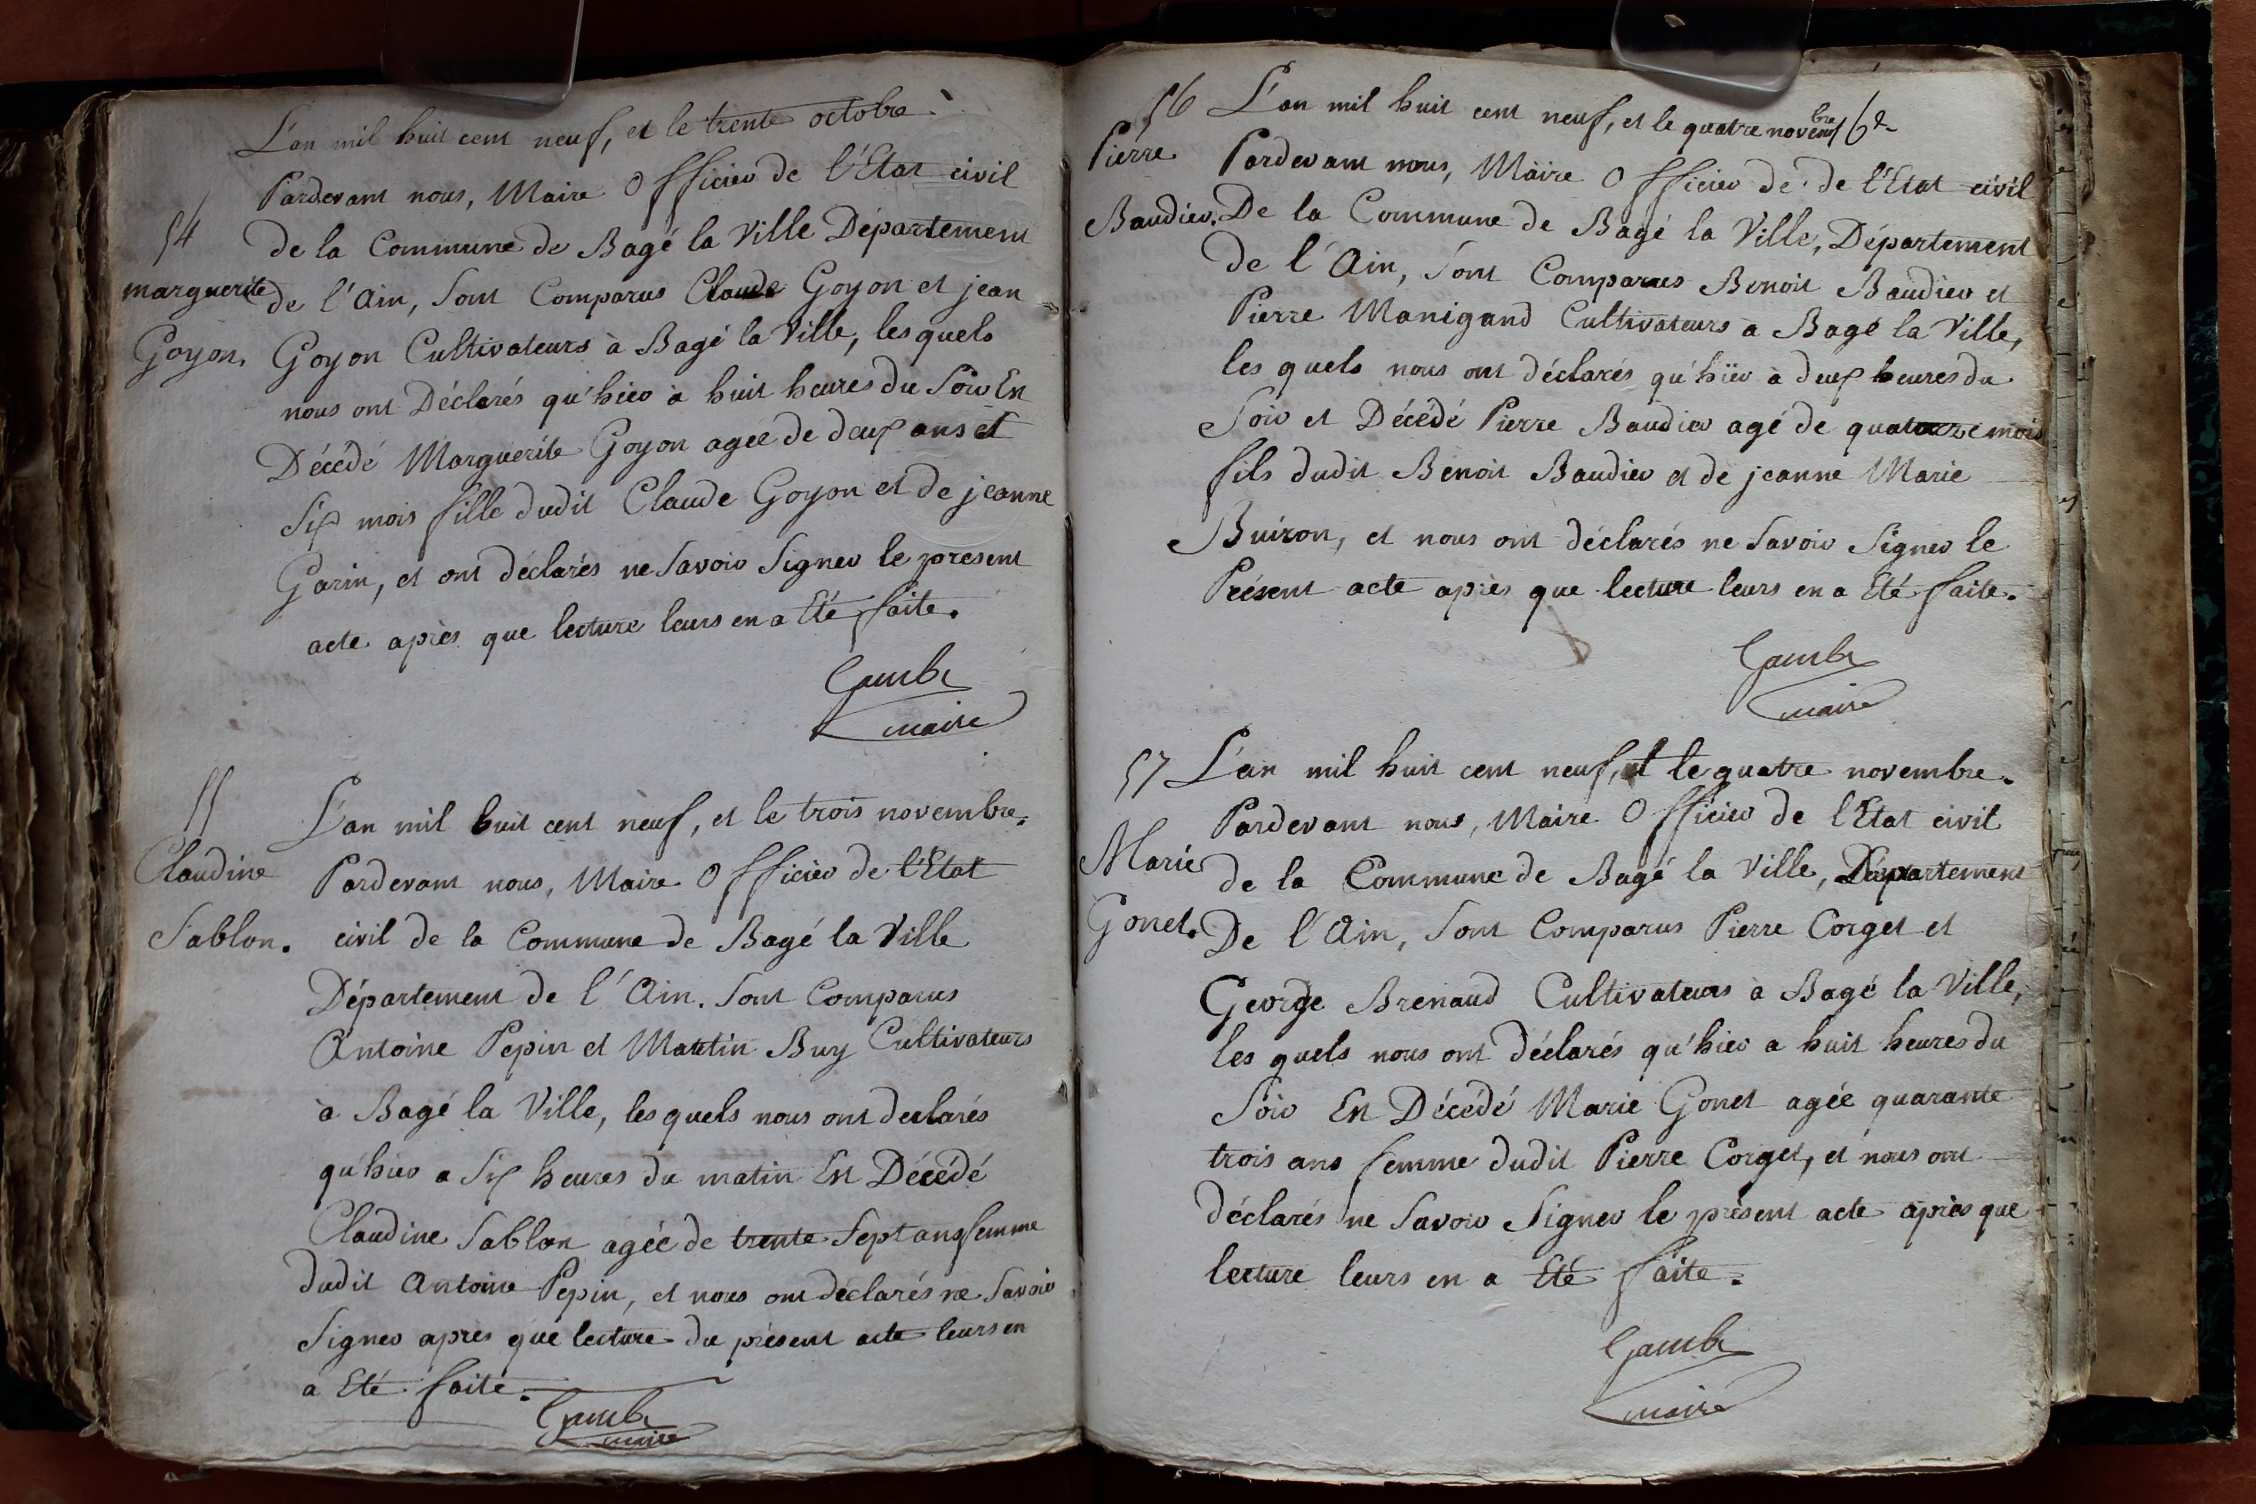 L'an mil huit cent neuf, et le trente octobre.
Pardevant nous, Maire Officier de l'Etat civil
54 de la Commune de Bagé la Ville Département
marguerite de l'Ain, sont Comparus Claude Goyon et jean
Goyon. Goyon Cultivateurs à Bagé la Ville, les quels
nous ont Déclarés qu'hier à huit heures du Soir En
Décédé Marguerite Goyon agee de deux ans et
Six mois fille dudit Claude Goyon et de jeanne
Garin, et ont déclarés ne Savoir Signer le present
acte après que lecture leurs en a Eté faite.
Gambr
maire
55
L'an mil huit cent neuf, et le trois novembre.
Claudine Pardevant nous, Maire Officier de l'Etat
Sablon. civil de la Commune de Bagé la Ville
Département de l'Ain. Sont Comparus
Antoine Pepin et Martin Buy Cultivateurs
à Bagé la Ville, les quels nous ont declarés
qu'hier a Six heures du matin En Décédé
Claudine Sablon agée de trente Sept ans femme
dudit Antoine Pepin, et nous ont déclarés ne Savoir
Signer après que lecture du présent acte leurs en
a Eté faite.
Gambr
maire
56 L'an mil huit cent neuf, et le quatre novembre
Pierre Pardevant nous, Maire Officier de de l'Etat civil
Baudier. De la Commune de Bagé la Ville, Département
de l'Ain, Sont Comparus Benoit Baudier et
Pierre Manigand Cultivateurs à Bagé la Ville,
les quels nous ont déclarés qu'hier à deux heures du
Soir et Décédé Pierre Baudier agé de quatorze mois
fils dudit Benoit Baudier et de jeanne Marie
Buiron, et nous ont déclarés ne Savoir Signer le
Présent acte après que lecture leurs en a Eté faite.
Gambr
maire
57 L'an mil huit cent neuf, et le quatre novembre.
Pardevant nous, Maire Officier de l'Etat civil
Marie de la Commune de Bagé la Ville, Département
Gonet. De l'Ain, Sont Comparus Pierre Corget et
George Brenaud Cultivateurs à Bagé la Ville,
les quels nous ont déclarés qu'hier a huit heures du
Soir En Décédé Marie Gonet agée quarante
trois ans femme dudit Pierre Corget, et nous ont
déclarés ne Savoir Signer le présent acte après que
lecture leurs en a Eté faite.
Gambr
maire